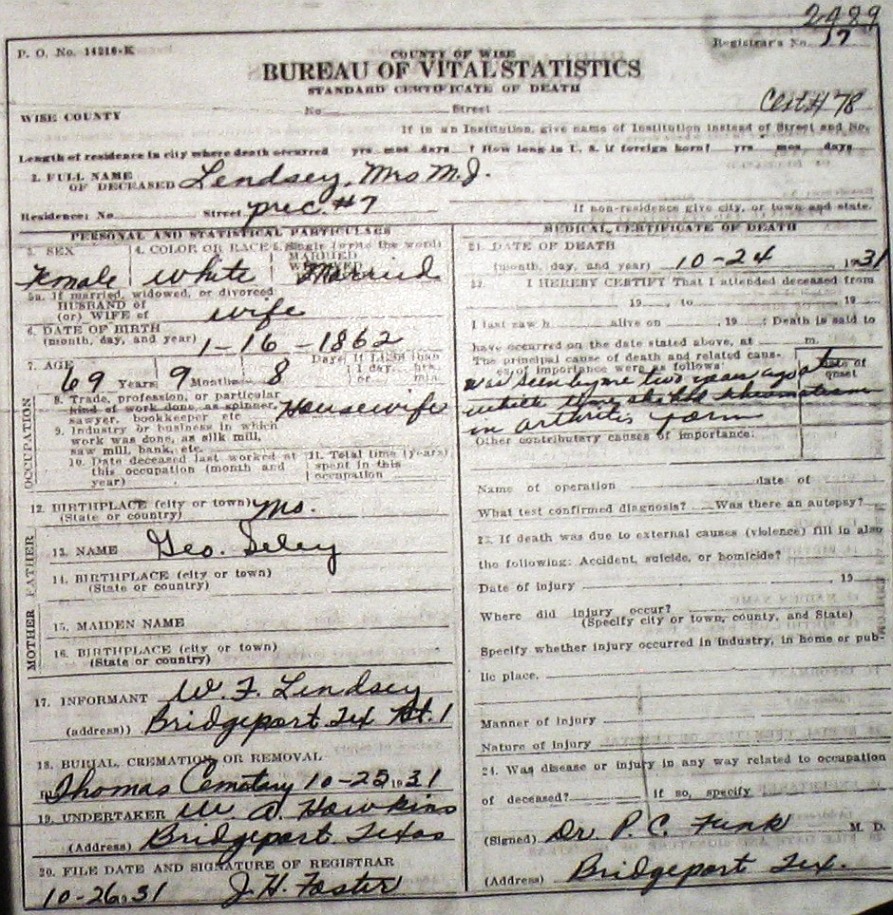 2489
P. O. No. 14216-K
Registrar's No. 17
COUNTY OF WISE
BUREAU OF VITAL STATISTICS
STANDARD CERTIFICATE OF DEATH
Cert# 78
No. Street
WISE COUNTY
If in an Institution, give name of Institution instead of Street and No.
Length of residence in city where death occurred yrs mos days ? How long in U. S. if foreign born? yrs mos days
2. FULL NAME
OF DECEASED Lendsey, Mrs M.J.
Residence: No. Street Prec. #7 If non-residence give city, or town and state.
PERSONAL AND STATISTICAL PARTICULARS
3. SEX 4. COLOR OR RACE 5. Single (write the word)
MARRIED
Female White Married
5a. If married, widowed, or divorced
HUSBAND of
(or) WIFE of wife
6. DATE OF BIRTH
(month, day, and year) 1-16-1862
7. AGE Days If LESS than
1 day, hrs.
69 Years 9 Months 8 or min.
OCCUPATION
8. Trade, profession, or particular
kind of work done, as spinner, Housewife
sawyer, bookkeeper etc
9. Industry or business in which
work was done, as silk mill,
saw mill, bank, etc.
10. Date deceased last worked at
this occupation (month and
year)
11. Total time (years)
spent in this
occupation
12. BIRTHPLACE (city or town) Mo.
(State or country)
FATHER
13. NAME Geo. Seley
14. BIRTHPLACE (city or town)
(State or country)
MOTHER
15. MAIDEN NAME
16. BIRTHPLACE (city or town)
(State or country)
17. INFORMANT W. F. Lendsey
(address)) Bridgeport Tex Rt. 1
18. BURIAL, CREMATION, OR REMOVAL
Thomas Cemetary 10-25 1931
19. UNDERTAKER W. A. Hawkins
(Address) Bridgeport Texas
20. FILE DATE AND SIGNATURE OF REGISTRAR
10-26, 31 J. H. Foster
MEDICAL CERTIFICATE OF DEATH
21. DATE OF DEATH
(month, day, and year) 10-24 1931
22. I HEREBY CERTIFY That I attended deceased from
19 , to 19
I last saw h alive on , 19 : Death is said to
have occurred on the date stated above, at m.
The principal cause of death and related caus-
es of importance were as follows: Date of
onset
was seen by me two years ago at
which time she had rheumatism
in arthritis form
Other contributary causes of importance:
Name of operation date of
What test confirmed diagnosis? Was there an autopsy?
23. If death was due to external causes (violence) fill in also
the following: Accident, suicide, or homicide?
Date of injury , 19
Where did injury occur?
(Specify city or town, county, and State)
Specify whether injury occurred in industry, in home or pub-
lic place.
Manner of injury
Nature of injury
24. Was disease or injury in any way related to occupation
of deceased? If so, specify
(Signed) Dr P. C. Funk M. D.
(Address) Bridgeport Tex.